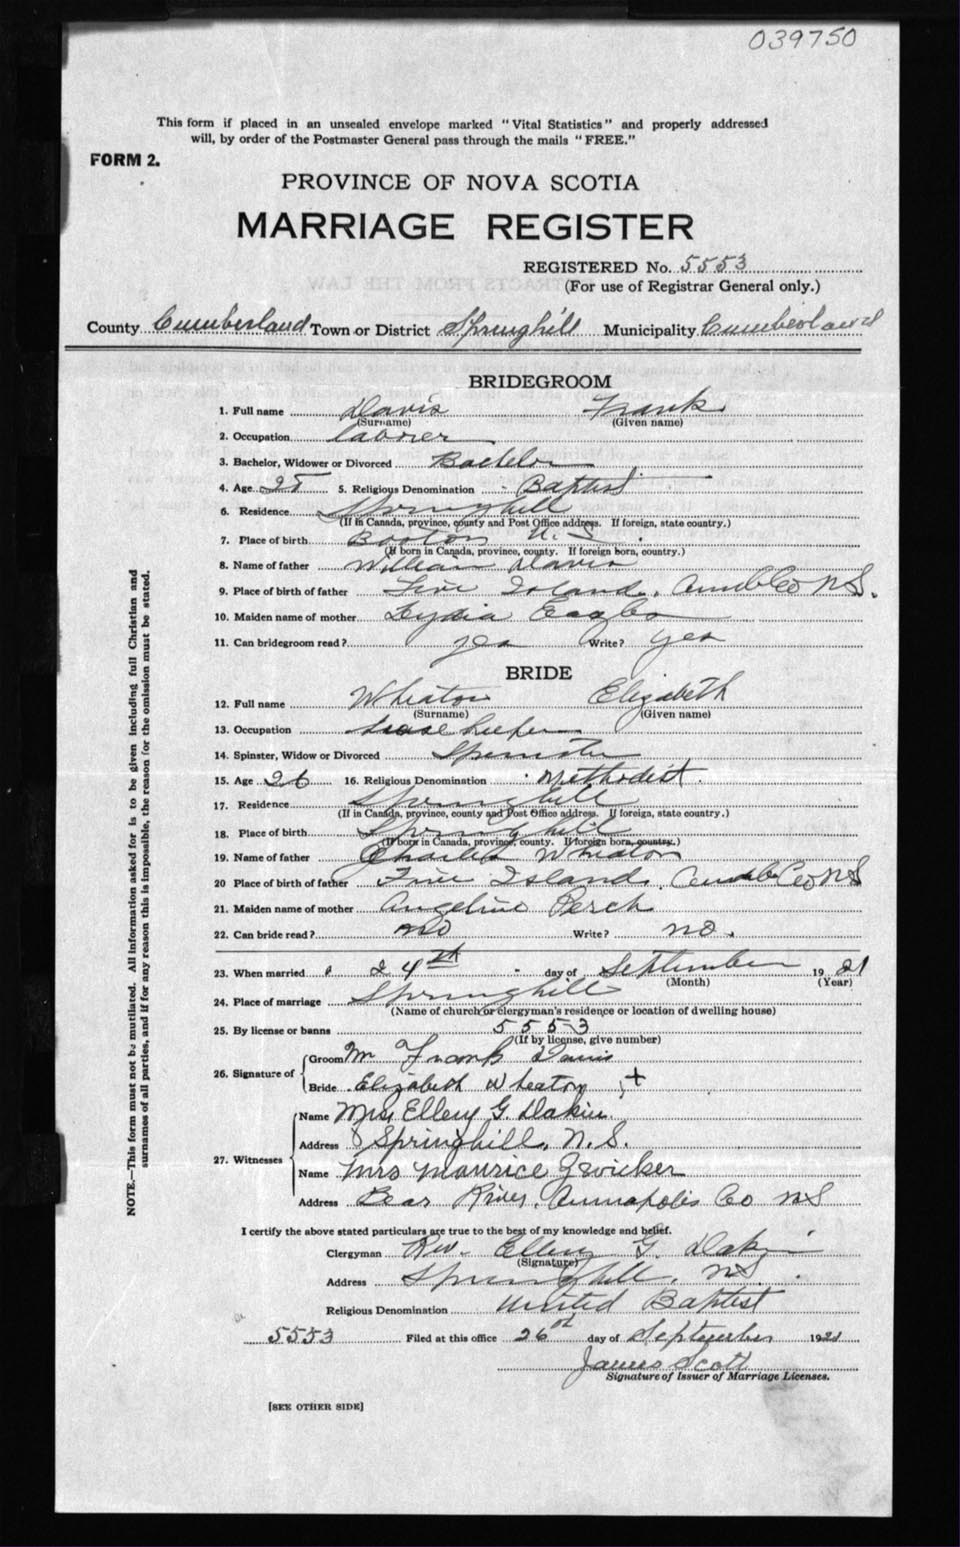 039750
This form if placed in an unsealed envelope marked "Vital Statistics" and properly addressed
will, by order of the Postmaster General pass through the mails "FREE."
FORM 2.
PROVINCE OF NOVA SCOTIA
MARRIAGE REGISTER
REGISTERED No. 5553
(For use of Registrar General only.)
County Cumberland Town or District Springhill Municipality Cumberland
BRIDEGROOM
1. Full name Davis Frank
(Surname) (Given name)
2. Occupation laborer
3. Bachelor, Widower or Divorced Bachelor
4. Age 25 5. Religious Denomination Baptist
6. Residence Springhill
(If in Canada, province, county and Post Office address. If foreign, state country.)
7. Place of birth N.S.
(If born in Canada, province, county. If foreign born, country.)
8. Name of father William Davis
9. Place of birth of father Five Islands, Cumb Co NS.
10. Maiden name of mother Lydia
11. Can bridegroom read? yes Write? yes
BRIDE
12. Full name Wheaton Elizabeth
(Surname) (Given name)
13. Occupation House keeper
14. Spinster, Widow or Divorced Spinster
15. Age 26 16. Religious Denomination Methodist.
17. Residence Springhill
(If in Canada, province, county and Post Office address. If foreign, state country.)
18. Place of birth Springhill
(If born in Canada, province, county. If foreign born, country.)
19. Name of father Charles Wheaton
20 Place of birth of father Five Islands, Cumb Co NS
21. Maiden name of mother Angeline Perch
22. Can bride read? no Write? no.
23. When married 24th day of September 1921
(Month) (Year)
24. Place of marriage Springhill
(Name of church or clergyman's residence or location of dwelling house)
25. By license or banns 5553
(If by license, give number)
26. Signature of
Groom Mr Frank Davis
Bride Elizabeth Wheaton +
27. Witnesses
Name Mrs Ellery G. Dakin.
Address Springhill, N.S.
Name Mrs Maurice Zwicker
Address Bear River, Annapolis Co NS
I certify the above stated particulars are true to the best of my knowledge and belief.
Clergyman Rev. Ellery G. Dakin
(Signature)
Address Springhill, NS.
Religious Denomination United Baptist
5553 Filed at this office 26th day of September 1921
James Scott
Signature of Issuer of Marriage Licenses.
[SEE OTHER SIDE]
NOTE.—This form must not be mutilated. All information asked for is to be given including full Christian and
surnames of all parties, and if for any reason this is impossible, the reason for the omission must be stated.